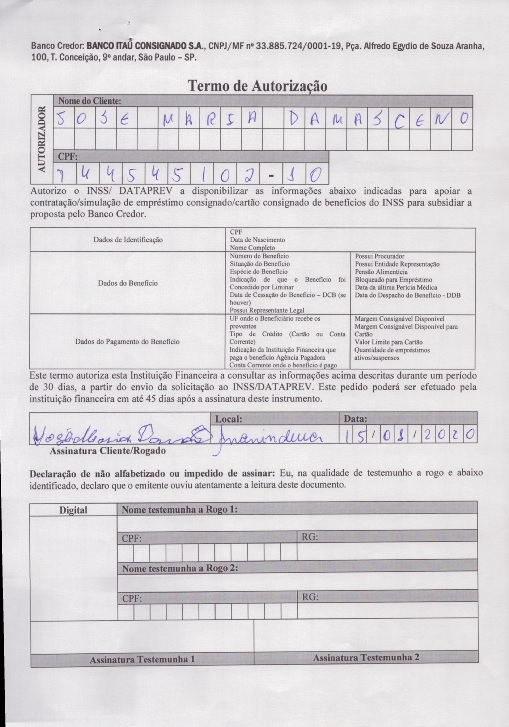 Banco Credor: BANCO ITAÚ CONSIGNADO S.A., CNPJ/MF nº 33.885.724/0001-19, Pça. Alfredo Egydio de Souza Aranha,
100, T. Conceição, 9º andar, São Paulo – SP.
Termo de Autorização
AUTORIZADOR
Nome do Cliente:
JOSE MARIA DAMASCENO
CPF:
744545102-10
Autorizo o INSS/ DATAPREV a disponibilizar as informações abaixo indicadas para apoiar a
contratação/simulação de empréstimo consignado/cartão consignado de benefícios do INSS para subsidiar a
proposta pelo Banco Credor.
Dados de Identificação
CPF
Data de Nascimento
Nome Completo
Dados do Benefício
Número do Benefício
Situação do Benefício
Espécie do Benefício
Indicação de que o Benefício foi
Concedido por Liminar
Data de Cessação do Benefício – DCB (se
houver)
Possui Representante Legal
Possui Procurador
Possui Entidade Representação
Pensão Alimentícia
Bloqueado para Empréstimo
Data da última Perícia Médica
Data do Despacho do Benefício - DDB
Dados do Pagamento do Benefício
UF onde o Beneficiário recebe os
proventos
Tipo de Crédito (Cartão ou Conta
Corrente)
Indicação da Instituição Financeira que
paga o benefício Agência Pagadora
Conta Corrente onde o benefício é pago
Margem Consignável Disponível
Margem Consignável Disponível para
Cartão
Valor Limite para Cartão
Quantidade de empréstimos
ativos/suspensos
Este termo autoriza esta Instituição Financeira a consultar as informações acima descritas durante um período
de 30 dias, a partir do envio da solicitação ao INSS/DATAPREV. Este pedido poderá ser efetuado pela
instituição financeira em até 45 dias após a assinatura deste instrumento.
Local:
Data:
15/01/2020
Assinatura Cliente/Rogado
Declaração de não alfabetizado ou impedido de assinar: Eu, na qualidade de testemunho a rogo e abaixo
identificado, declaro que o emitente ouviu atentamente a leitura deste documento.
Digital
Nome testemunha a Rogo 1:
CPF:
RG:
Nome testemunha a Rogo 2:
CPF:
RG:
Assinatura Testemunha 1
Assinatura Testemunha 2